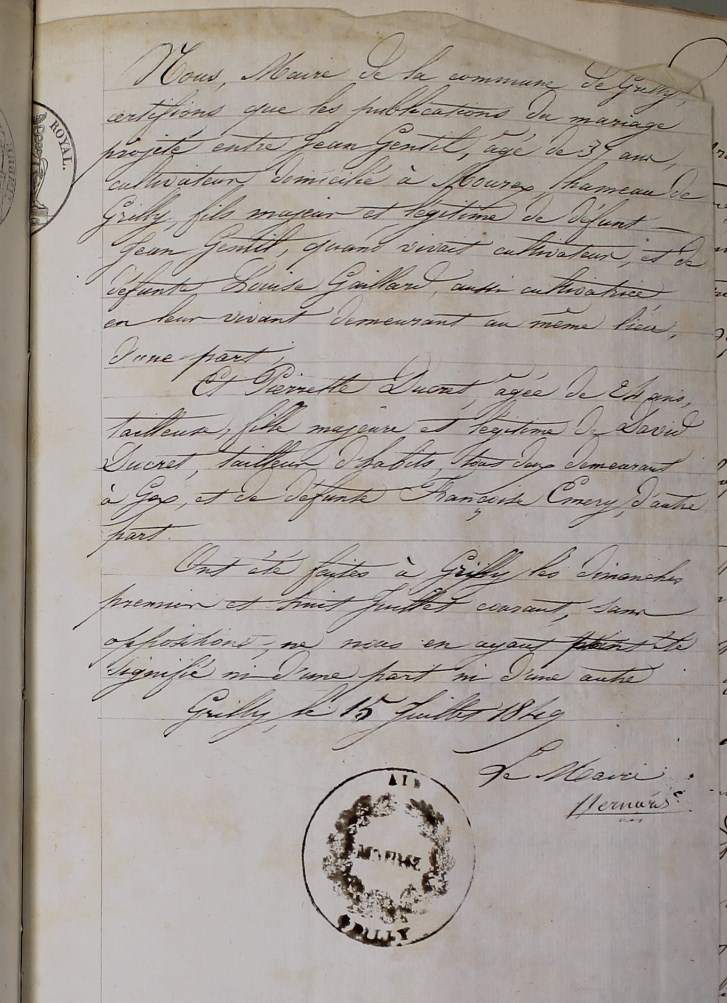 ROYAL.
Nous, Maire de la commune de Grilly,
certifions que les publications du mariage
projeté entre Jean Gentil, âgé de ans,
cultivateur, domicilié à Mourex, hameau de
Grilly, fils majeur et légitime de défunt
Jean Gentil, quand vivait cultivateur, et de
défunte Louise Gaillard, aussi cultivatrice,
en leur vivant demeurant au même lieu,
d'une part,
Et Pierrette Ducret, âgée de ans,
tailleuse, fille majeure et légitime de David
Ducret, tailleur d'habits, tous deux demeurant
à Gex, et de défunte Françoise Emery, d'autre
part.
Ont été faites à Grilly les dimanches
premier et huit Juillet courant, sans
oppositions, ne nous en ayant point été
signifié ni d'une part ni d'une autre
Grilly, le 15 Juillet 1849
Le Maire
AIN
MAIRIE
GRILLY